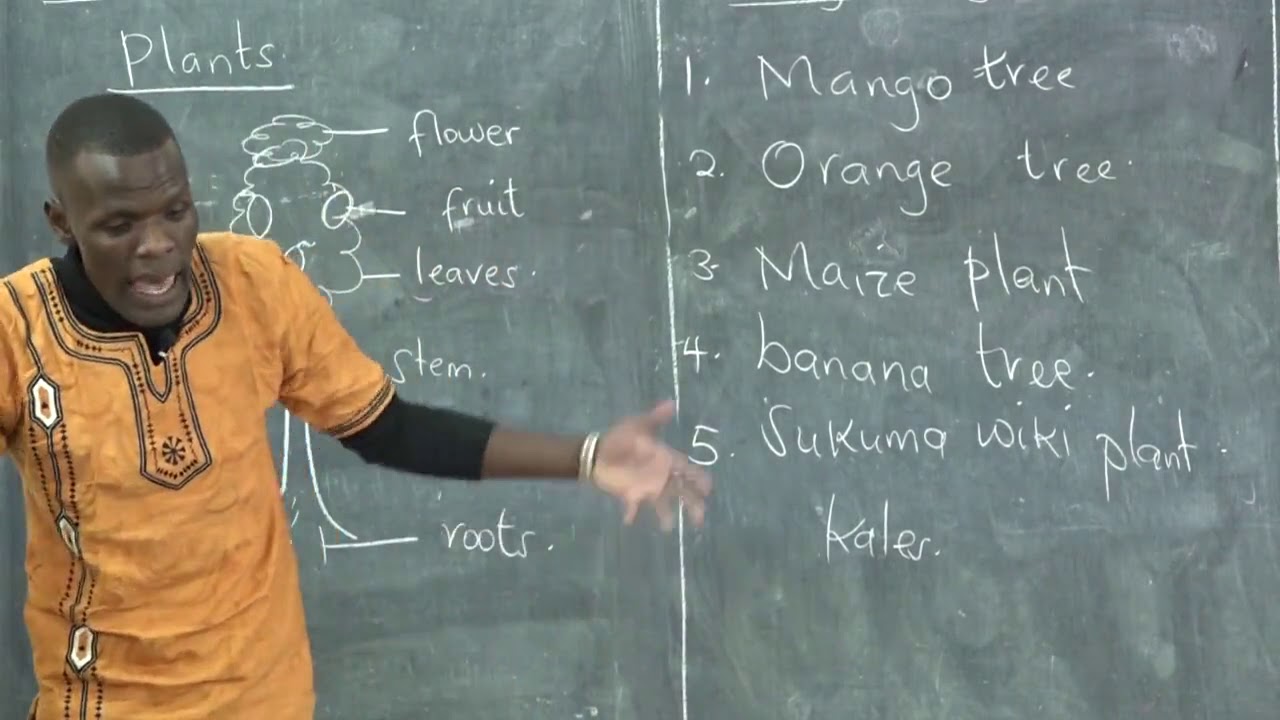 Plants.
flower
fruit
leaves.
stem.
roots.
1. Mango tree
2. Orange tree.
3. Maize plant
4. banana tree.
5. Sukuma wiki plant.
Kales.